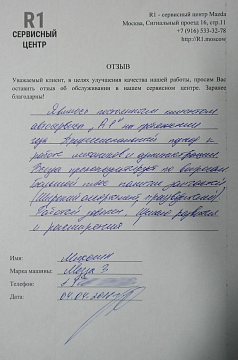 R1
СЕРВИСНЫЙ
ЦЕНТР
R1 - сервисный центр Mazda
Москва, Сигнальный проезд 16, стр.11
+7 (916) 533-32-78
http://R1.moscow
ОТЗЫВ
Уважаемый клиент, в целях улучшения качества нашей работы, просим Вас
оставить отзыв об обслуживании в нашем сервисном центре. Заранее
благодарны!
Являюсь постоянным клиентом
автосервиса "R1" на протяжении
года. Профессиональный подход к
работе механиков и администрации.
Всегда
большой
Широкий
Работой доволен. Желаю развития
и расширения
Имя:
Марка машины: Мазда 3
Телефон:
Дата: 04.04.